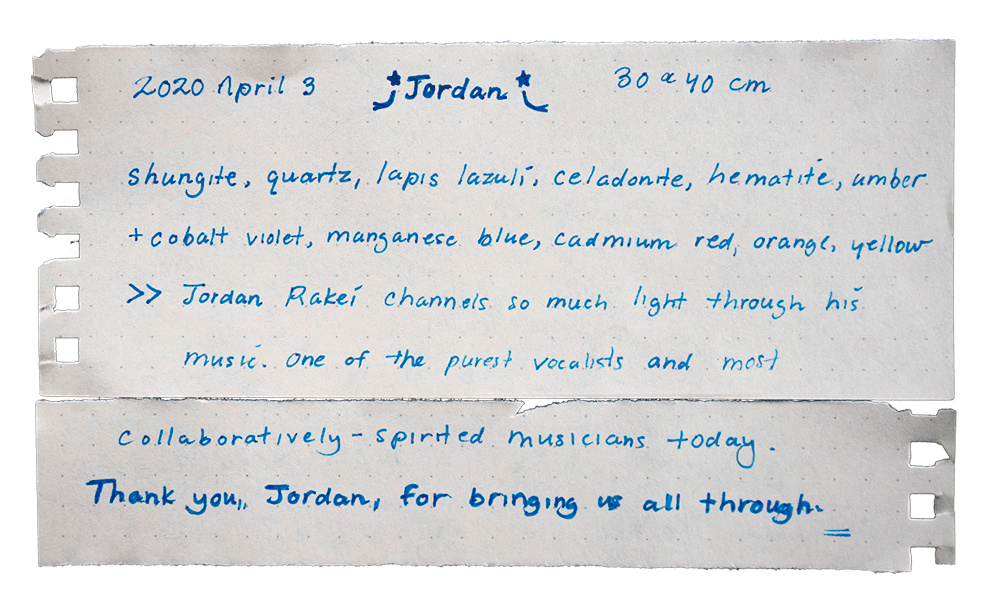 2020 April 3 Jordan 30 x 40 cm
shungite, quartz, lapis lazuli, celadonite, hematite, umber
+ cobalt violet, manganese blue, cadmium red, orange, yellow
>> Jordan Rakei channels so much light through his
music. One of the purest vocalists and most
collaboratively-spirited musicians today.
Thank you, Jordan, for bringing us all through.